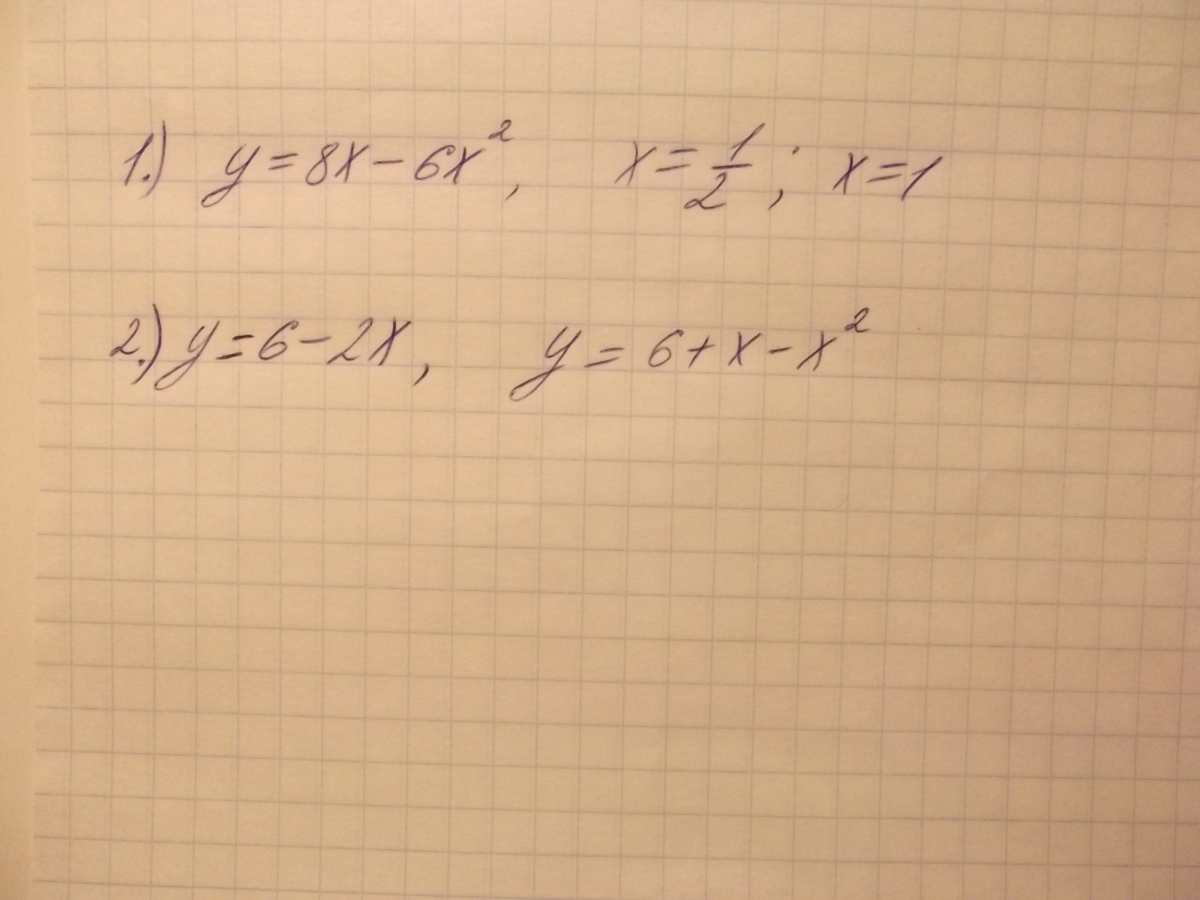 1.) y=8x-6x², x=1/2; x=1
2.) y=6-2x, y=6+x-x²